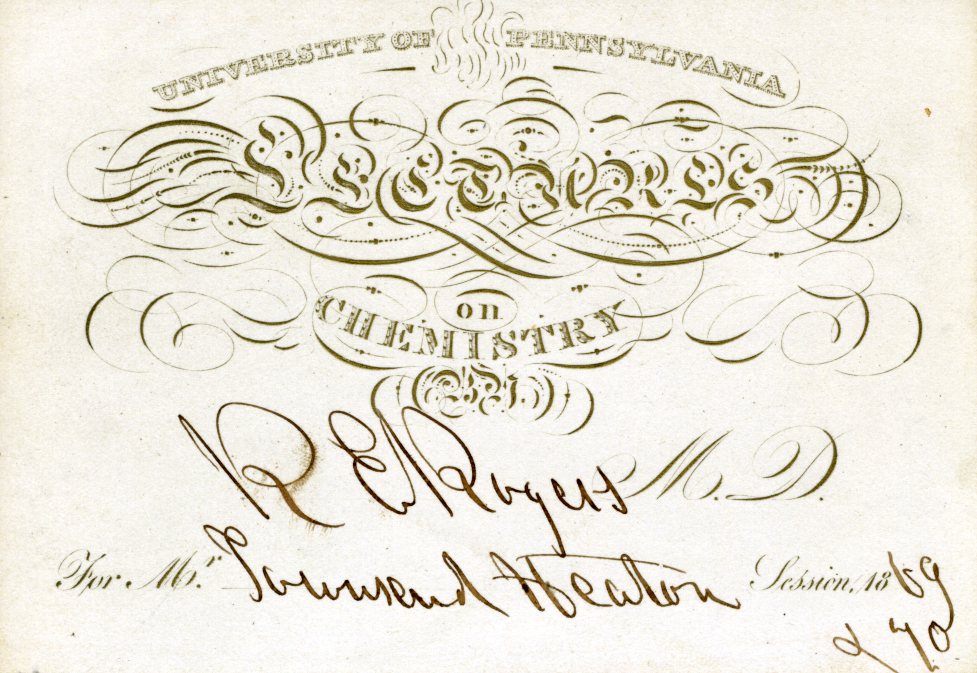 UNIVERSITY OF PENNSYLVANIA
LECTURES
on
CHEMISTRY
BY.
R E Rogers M.D.
For Mr. Townsend Heaton Session, 1869
& 70